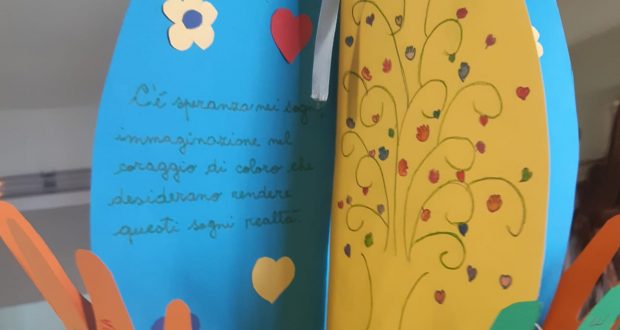 C'è speranza nei sogni,
immaginazione nel
coraggio di coloro che
desiderano rendere
questi sogni realtà.